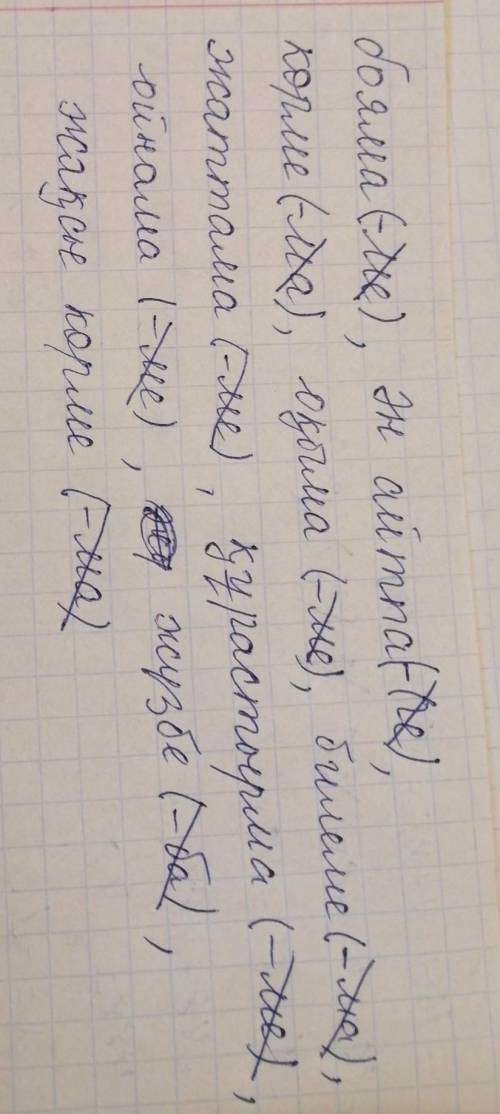 бояма (-ме), ән айтпа(-пе),
корме (-ма), оқыма (-ме), билеме (-ма),
жаттама (-ме), құрастырма (-ме),
ойнама (-ме), жузбе (-ба),
жақсы корме (-ма)